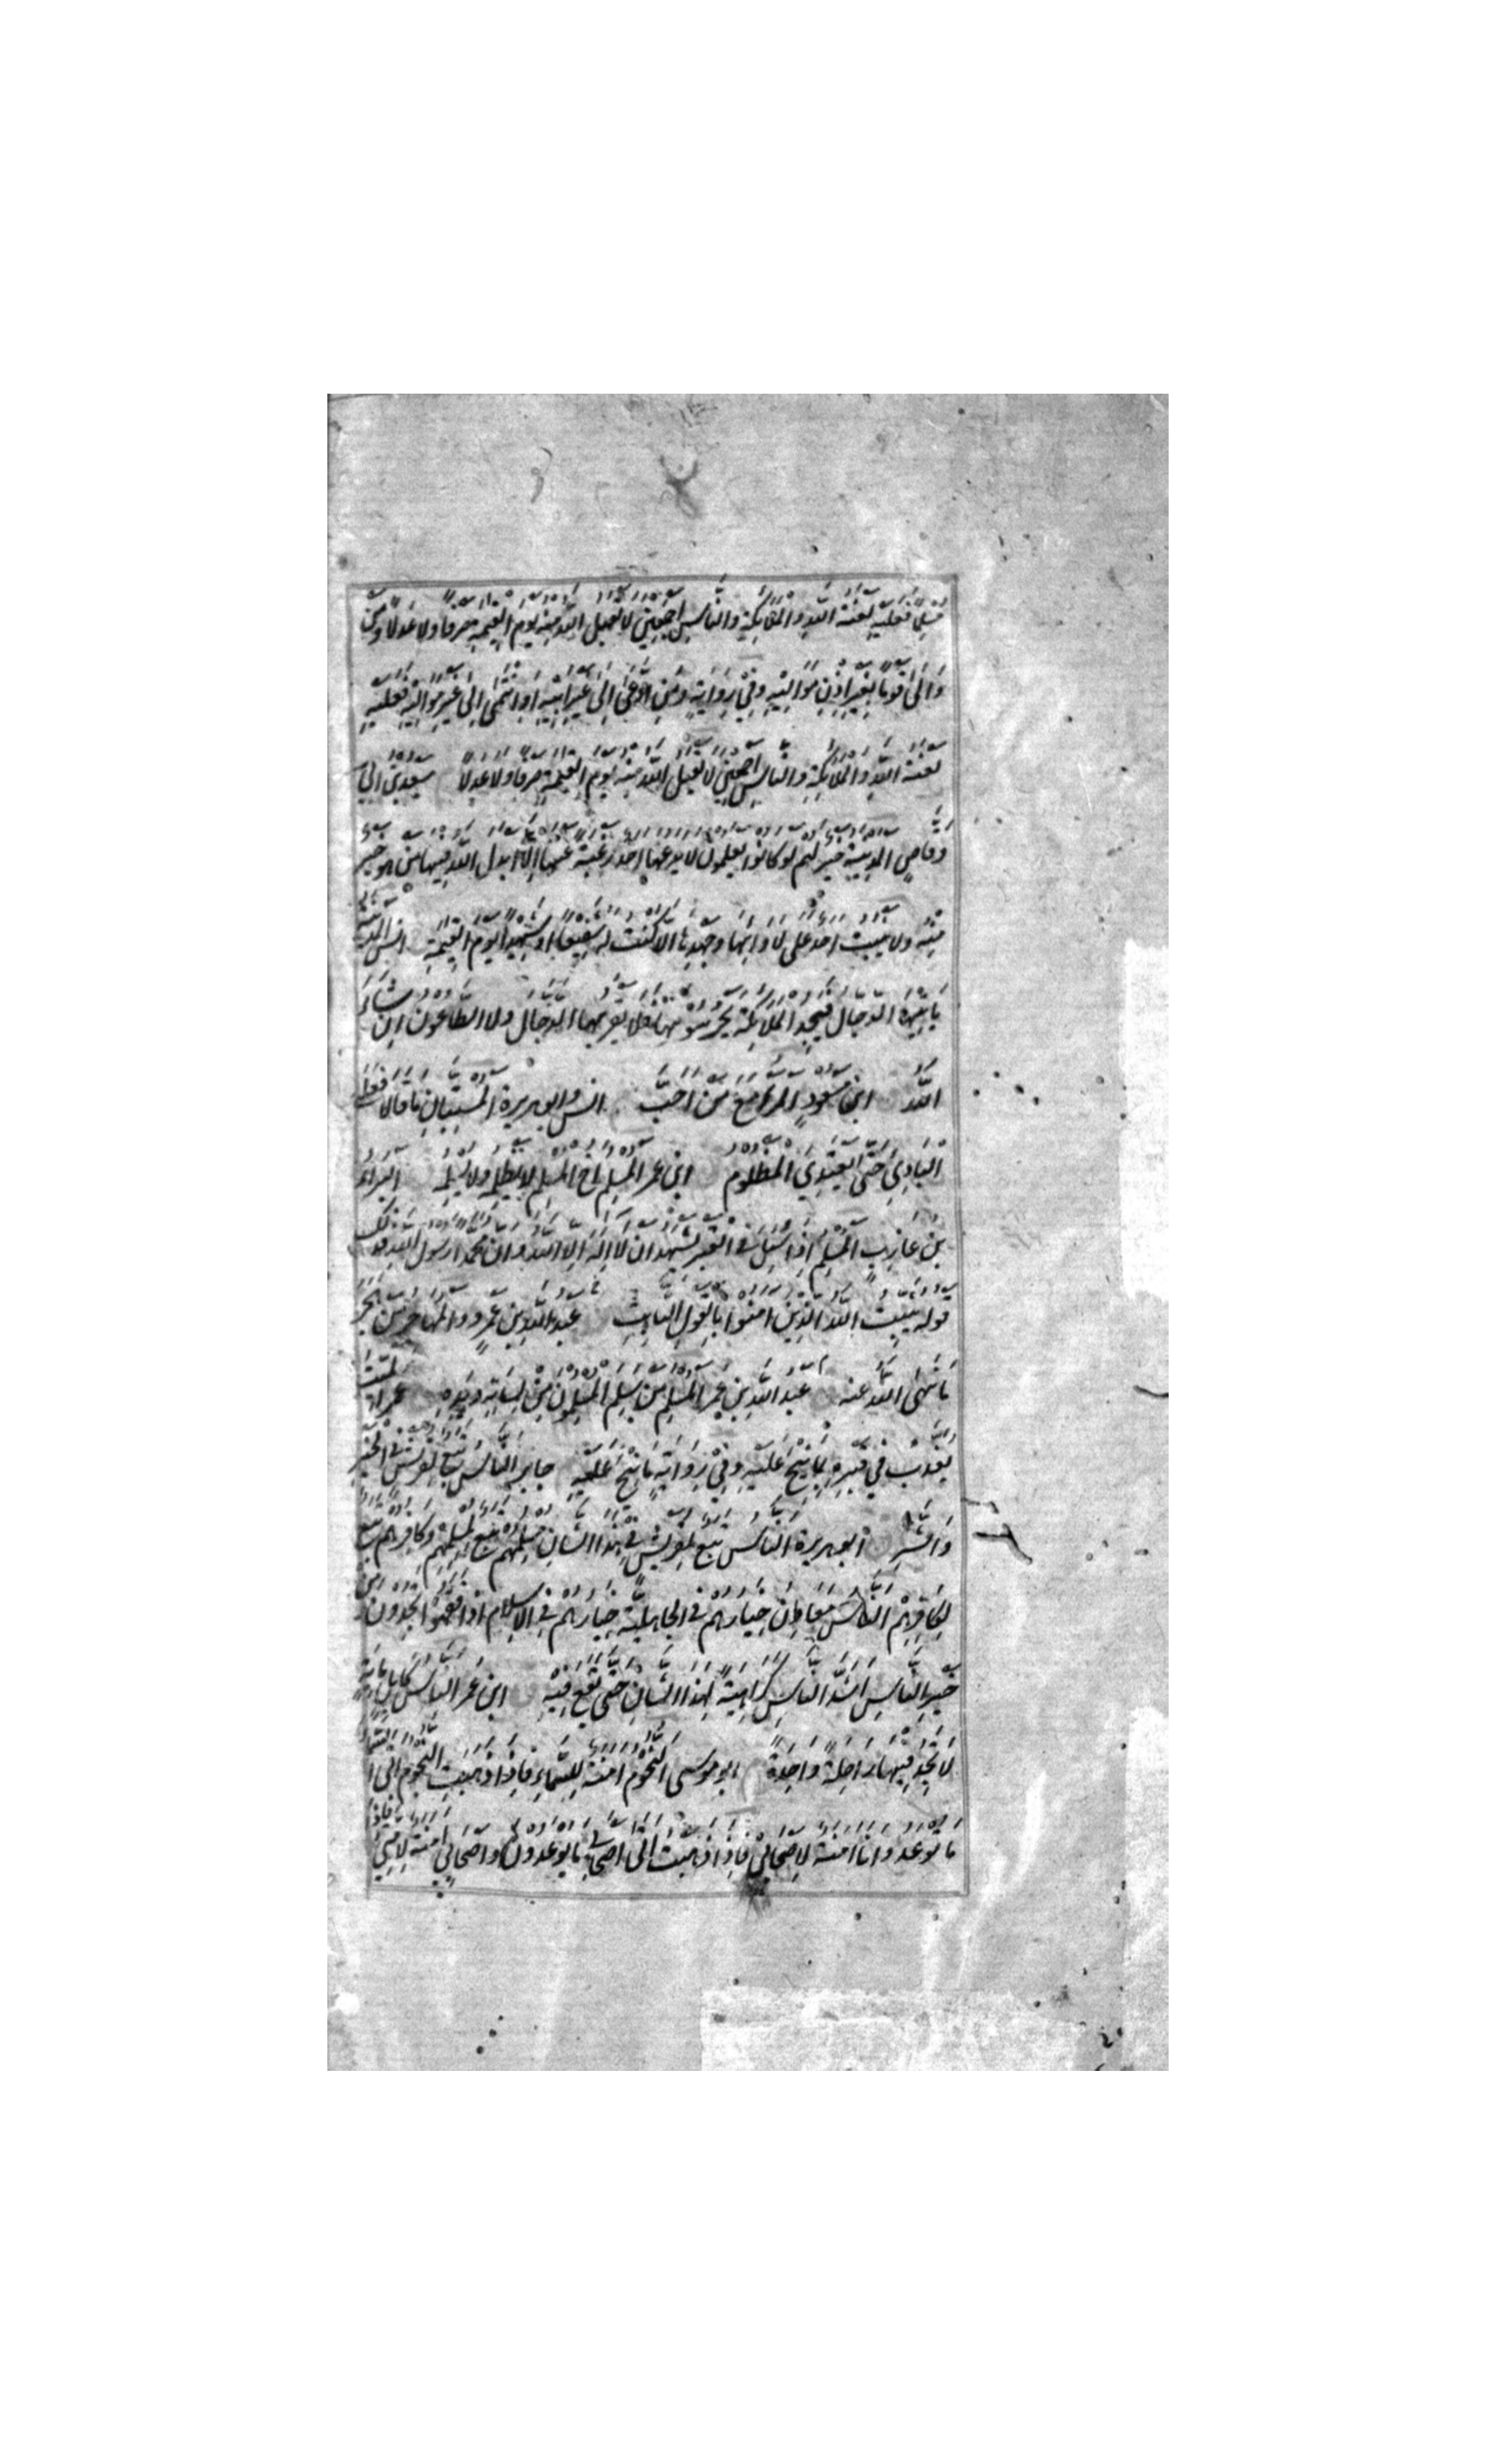 مسلما فعليه لعنة الله والملائكة والناس اجمعين لا يقبل الله منه يوم القيمة صرفا ولا عدلا ومن
والى قوما بغير اذن مواليه وفي رواية ومن ادعى الى غير ابيه او انتمى الى غير مواليه فعليه
لعنة الله والملائكة والناس اجمعين لا يقبل الله منه يوم القيمة صرفا ولا عدلا سعد بن ابي
وقاص المدينة خير لهم لو كانوا يعلمون لا يدعها احد رغبة عنها الا ابدل الله فيها من هو خير
منه ولا يثبت احد على لاوائها وجهدها الا كنت له شفيعا او شهيدا يوم القيمة انس المدينة
ياتيها الدجال فيجد الملائكة يحرسونها فلا يقربها الدجال ولا الطاعون ان شاء
الله ابن مسعود المرء مع من احب انس وابو هريرة المستبان ما قالا فعلى
البادئ حتى يعتدي المظلوم ابن عمر المسلم اخ المسلم لا يظلمه ولا يسلمه البراء
بن عازب المسلم اذا سئل في القبر يشهد ان لا اله الا الله وان محمدا رسول الله فذلك
قوله يثبت الله الذين امنوا بالقول الثابت عبد الله بن عمرو والمهاجر من هجر
ما نهى الله عنه عبد الله بن عمر المسلم من سلم المسلمون من لسانه ويده عمر الميت
يعذب في قبره بما نيح عليه وفي رواية ما نيح عليه جابر الناس تبع لقريش في الخير
والشر ابو هريرة الناس تبع لقريش في هذا الشان مسلمهم تبع لمسلمهم وكافرهم تبع
لكافرهم الناس معادن خيارهم في الجاهلية خيارهم في الاسلام اذا فقهوا تجدون من
خير الناس اشد الناس كراهية لهذا الشان حتى يقع فيه ابن عمر الناس كابل مائة
لا تجد فيها راحلة واحدة ابو موسى النجوم امنة للسماء فاذا ذهبت النجوم اتى السماء
ما توعد وانا امنة لاصحابي فاذا ذهبت اتى اصحابي ما يوعدون واصحابي امنة لامتي فاذا